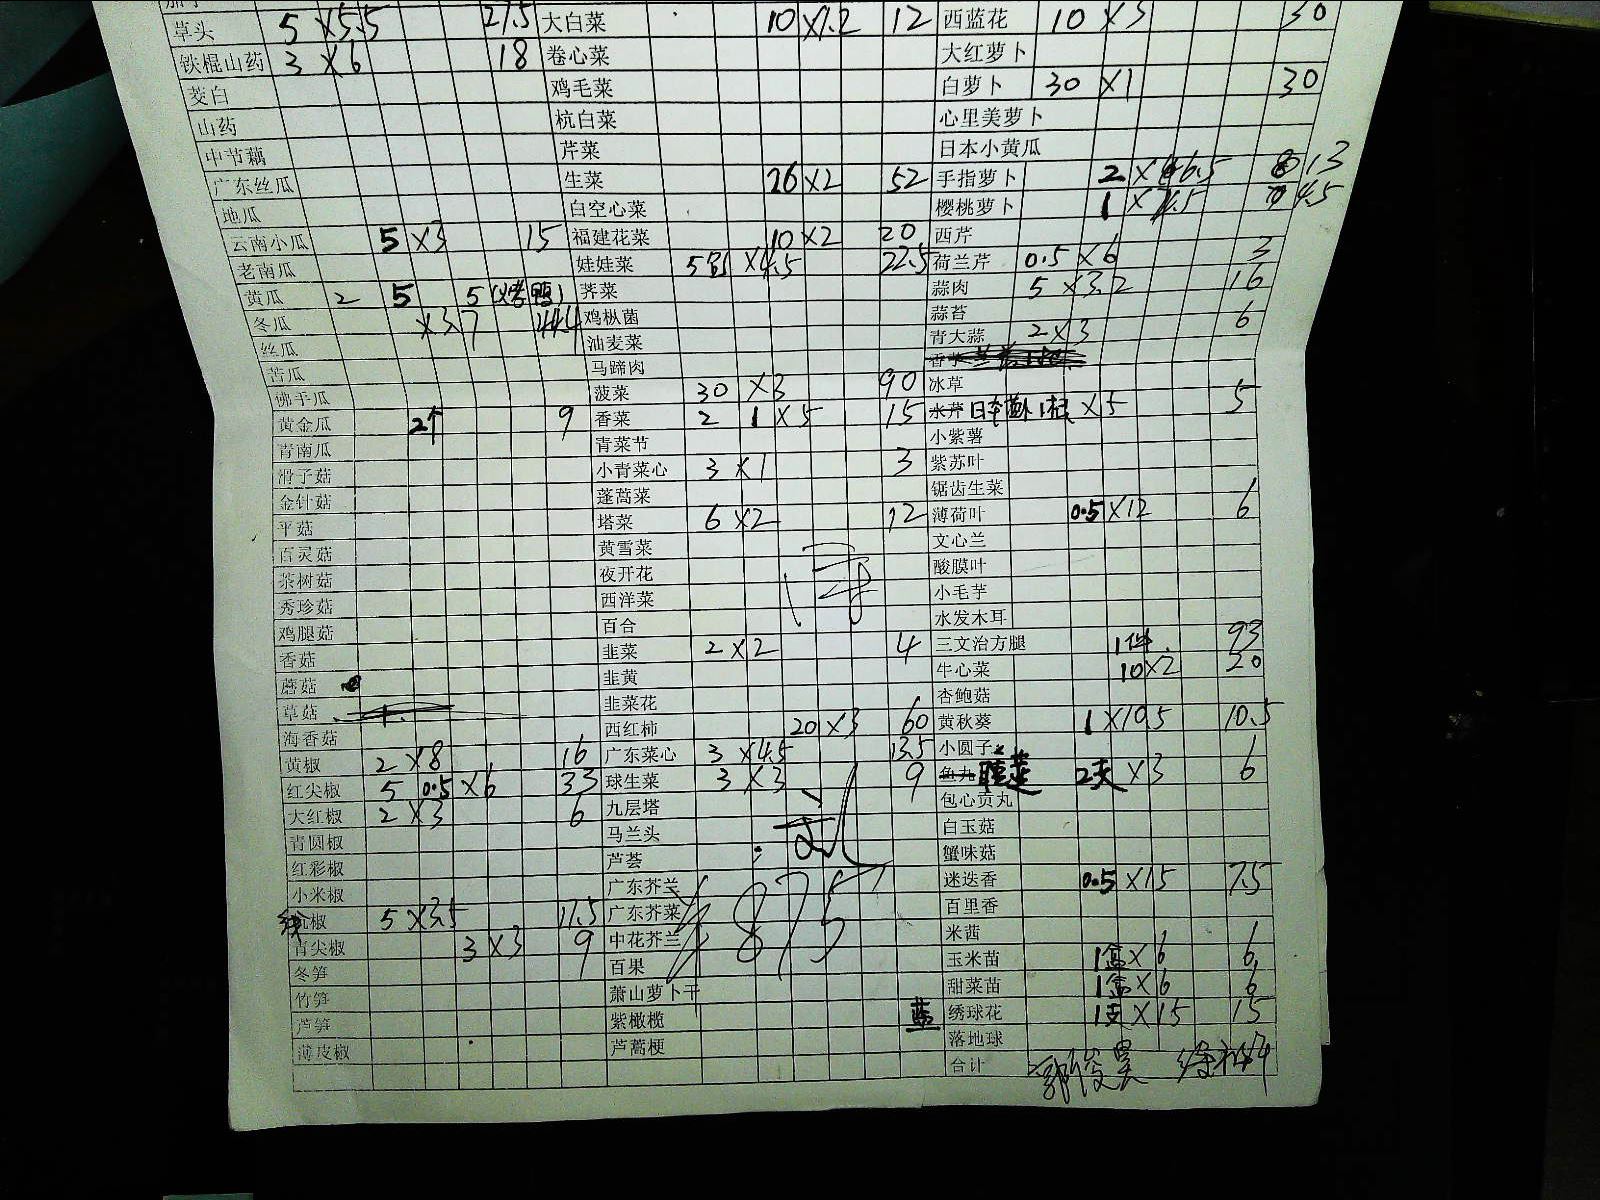 草头 5 ×5.5 27.5 大白菜 10 ×1.2 12 西蓝花 10 ×3 30
铁棍山药 3 ×6 18 卷心菜 大红萝卜
茭白 鸡毛菜 白萝卜 30 ×1 30
山药 杭白菜 心里美萝卜
中节藕 芹菜 日本小黄瓜
广东丝瓜 生菜 26 ×2 52 手指萝卜 2 × 6.5 13
地瓜 白空心菜 樱桃萝卜 1 × 4.5 4.5
云南小瓜 5 ×3 15 福建花菜 10 ×2 20 西芹
老南瓜 娃娃菜 5 ×4.5 22.5 荷兰芹 0.5 ×6 3
黄瓜 2 5 5 (烤鸭) 荠菜 蒜肉 5 ×3.2 16
冬瓜 ×3.7 44.4 鸡枞菌 蒜苔
丝瓜 油麦菜 青大蒜 2 ×3 6
苦瓜 马蹄肉
佛手瓜 菠菜 30 ×3 90 冰草
黄金瓜 2个 9 香菜 2 1 ×5 15 水芹 日本 ×5 5
青南瓜 青菜节 小紫薯
滑子菇 小青菜心 3 ×1 3 紫苏叶
金针菇 蓬蒿菜 锯齿生菜
平菇 塔菜 6 ×2 12 薄荷叶 0.5 ×12 6
百灵菇 黄雪菜 文心兰
茶树菇 夜开花 酸膜叶
秀珍菇 西洋菜 小毛芋
鸡腿菇 百合 水发木耳
香菇 韭菜 2 ×2 4 三文治方腿 1件 93
蘑菇 韭黄 牛心菜 10 ×2 20
草菇 韭菜花 杏鲍菇
海香菇 西红柿 20 ×3 60 黄秋葵 1 ×10.5 10.5
黄椒 2 ×8 16 广东菜心 3 ×4.5 13.5 小圆子
红尖椒 5 0.5 ×6 33 球生菜 3 ×3 9 鱼丸 睡莲 2支 ×3 6
大红椒 2 ×3 6 九层塔 包心贡丸
青圆椒 马兰头 白玉菇
红彩椒 芦荟 蟹味菇
小米椒 广东芥兰 迷迭香 0.5 ×15 7.5
线椒 5 ×3.5 17.5 广东芥菜 百里香
青尖椒 3 ×3 9 中花芥兰 875 米茜
冬笋 百果 玉米苗 1盒 ×6 6
竹笋 萧山萝卜干 甜菜苗 1盒 ×6 6
芦笋 紫橄榄 蓝 绣球花 1支 ×15 15
薄皮椒 芦蒿梗 落地球
合计